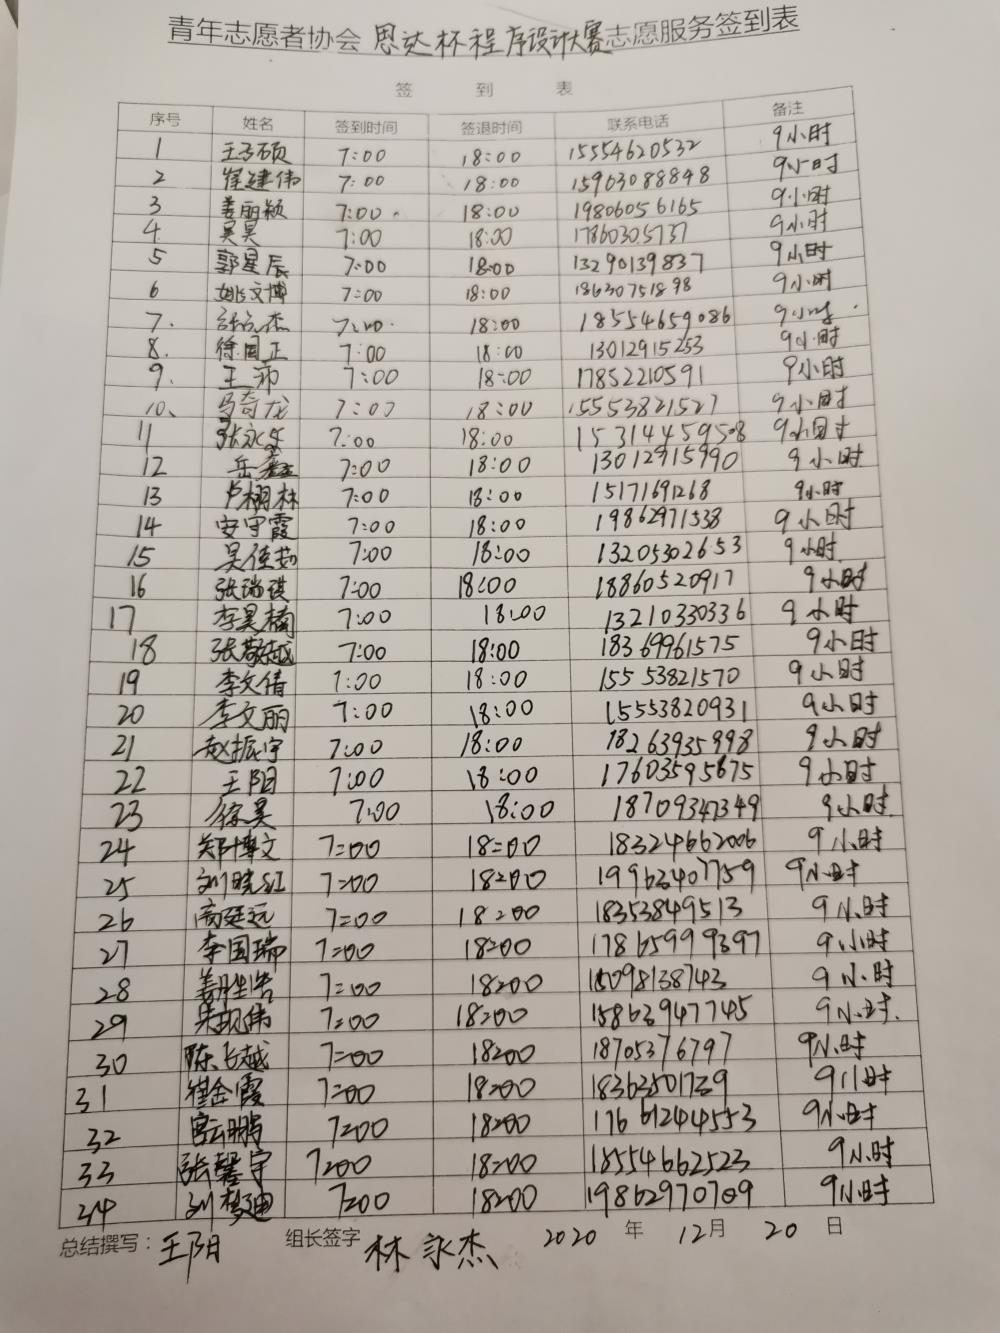 青年志愿者协会 思达杯程序设计大赛志愿服务签到表
签 到 表
序号 姓名 签到时间 签退时间 联系电话 备注
1 王子硕 7:00 18:00 15554620532 9小时
2 崔建伟 7:00 18:00 15963088848 9小时
3 姜丽颖 7:00 18:00 19806056165 9小时
4 吴昊 7:00 18:00 17860305737 9小时
5 郭星辰 7:00 18:00 13290139837 9小时
6 姚文博 7:00 18:00 18630751898 9小时
7. 7:00 18:00 18554659086 9小时
8. 徐国正 7:00 18:00 13012915253 9小时
9. 王沛 7:00 18:00 17852210591 9小时
10、 马奇龙 7:00 18:00 15553821527 9小时
11 张永乐 7:00 18:00 15314459508 9小时
12 岳鑫 7:00 18:00 13012915990 9小时
13 卢栩林 7:00 18:00 15171691268 9小时
14 安守霞 7:00 18:00 19862971538 9小时
15 吴佳茹 7:00 18:00 13205302653 9小时
16 张瑞琪 7:00 18:00 18860520917 9小时
17 李昊楠 7:00 18:00 13210330336 9小时
18 张敬越 7:00 18:00 18369961575 9小时
19 李文倩 7:00 18:00 15553821570 9小时
20 李文丽 7:00 18:00 15553820931 9小时
21 赵振宇 7:00 18:00 18263935998 9小时
22 王阳 7:00 18:00 17603595875 9小时
23 徐昊 7:00 18:00 18709347349 9小时
24 郑博文 7:00 18:00 18324662006 9小时
25 刘晓红 7:00 18:00 19963407759 9小时
26 商廷远 7:00 18:00 18353849513 9小时
27 李国瑞 7:00 18:00 17865999397 9小时
28 姜胜浩 7:00 18:00 18098138743 9小时
29 朱凯伟 7:00 18:00 15863947745 9小时
30 陈长越 7:00 18:00 18705376797 9小时
31 崔金霞 7:00 18:00 18363501739 9小时
32 宫云鹏 7:00 18:00 17661244553 9小时
33 张馨宇 7:00 18:00 18554662523 9小时
34 刘梦迪 7:00 18:00 19862970709 9小时
总结撰写：王阳 组长签字 林永杰 2020 年 12月 20 日